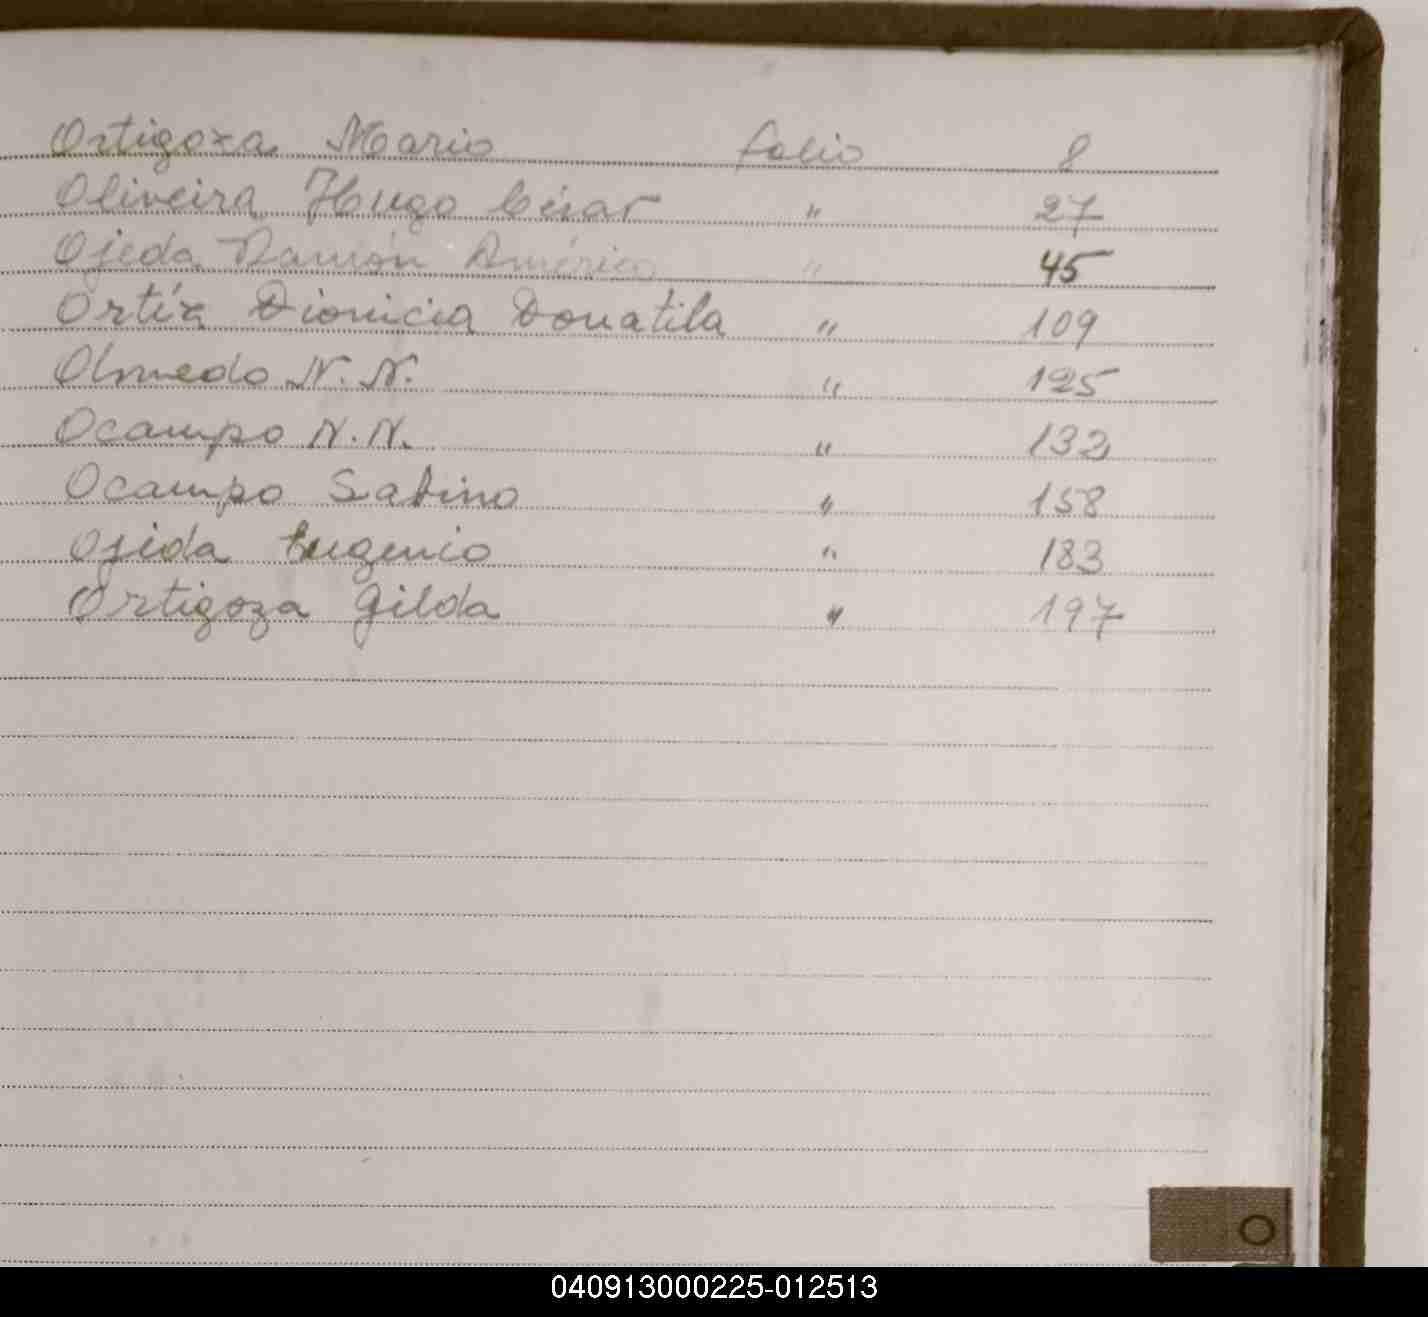 Ortigoza Mario folio 8
Oliveira Hugo César " 27
Ojeda Ramón Américo " 45
Ortíz Dionicia Donatila " 109
Olmedo N. N. " 125
Ocampo N. N. " 132
Ocampo Sabino " 158
Ojeda Eugenio " 183
Ortigoza Gilda " 197
O
040913000225-012513